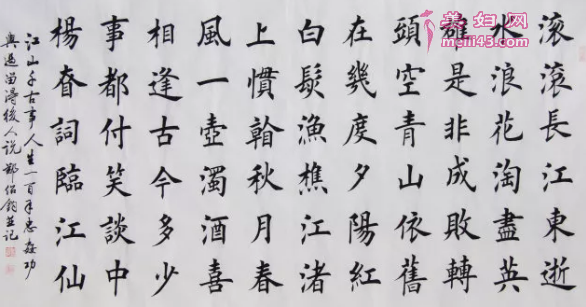 美妇网
meili43.com
滚滚長江東逝
水浪花淘盡英
雄是非成敗轉
頭空青山依舊
在幾度夕陽紅
白髮漁樵江渚
上慣看秋月春
風一壺濁酒喜
相逢古今多少
事都付笑談中
楊眘詞臨江仙
江山千古事人生一百年忠姦功
與過留得後人說